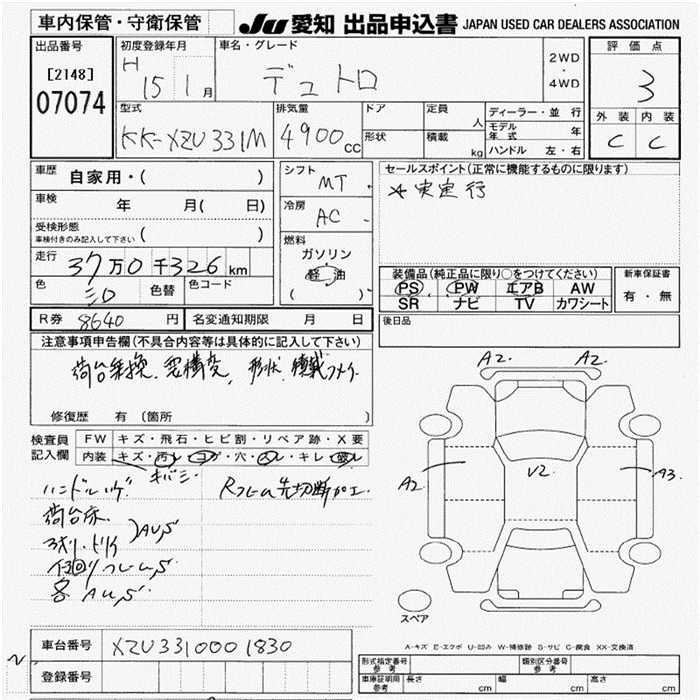 車内保管・守衛保管
JU 愛知 出品申込書 JAPAN USED CAR DEALERS ASSOCIATION
出品番号
[2148]
07074
初度登録年月
H 15 1月
車名・グレード
デュトロ
2WD
・
4WD
評価点
3
外装 内装
C C
型式
KK-XZU331M
排気量
4900cc
ドア
形状
定員 人
積載 kg
ディーラー・並行
モデル年式 年
ハンドル 左・右
車歴
自家用・( )
車検 年 月( 日)
受検形態
車検付きのみ記入して下さい ( )
走行 37万0千326km
色 シロ 色替 色コード
シフト
MT
冷房
AC
燃料
ガソリン
軽油
( )
セールスポイント(正常に機能するものに限ります)
☆実走行
装備品(純正品に限り○をつけてください)
PS PW エアB AW
SR ナビ TV カワシート
新車保証書
有・無
後日品
R券 8640円 名変通知期限 月 日
注意事項申告欄(不具合内容等は具体的に記入して下さい)
荷台乗換、要構変、形状、積載
修復歴 有(箇所 )
検査員
記入欄
FW キズ・飛石・ヒビ割・リペア跡・X要
内装 キズ・汚レ・コゲ・穴・スレ・キレ・破レ
ハンドル
荷台床
Rフレーム先切断加工
A2. A2.
A2 V2 A3
スペア
A-キズ E-エクボ U-凹み W-補修跡 S-サビ C-腐食 XX-交換済
車台番号 XZU3310001830
登録番号
型式指定番号
参考
類別区分番号
参考
車庫証明用
参考
長さ cm 幅 cm 高さ cm